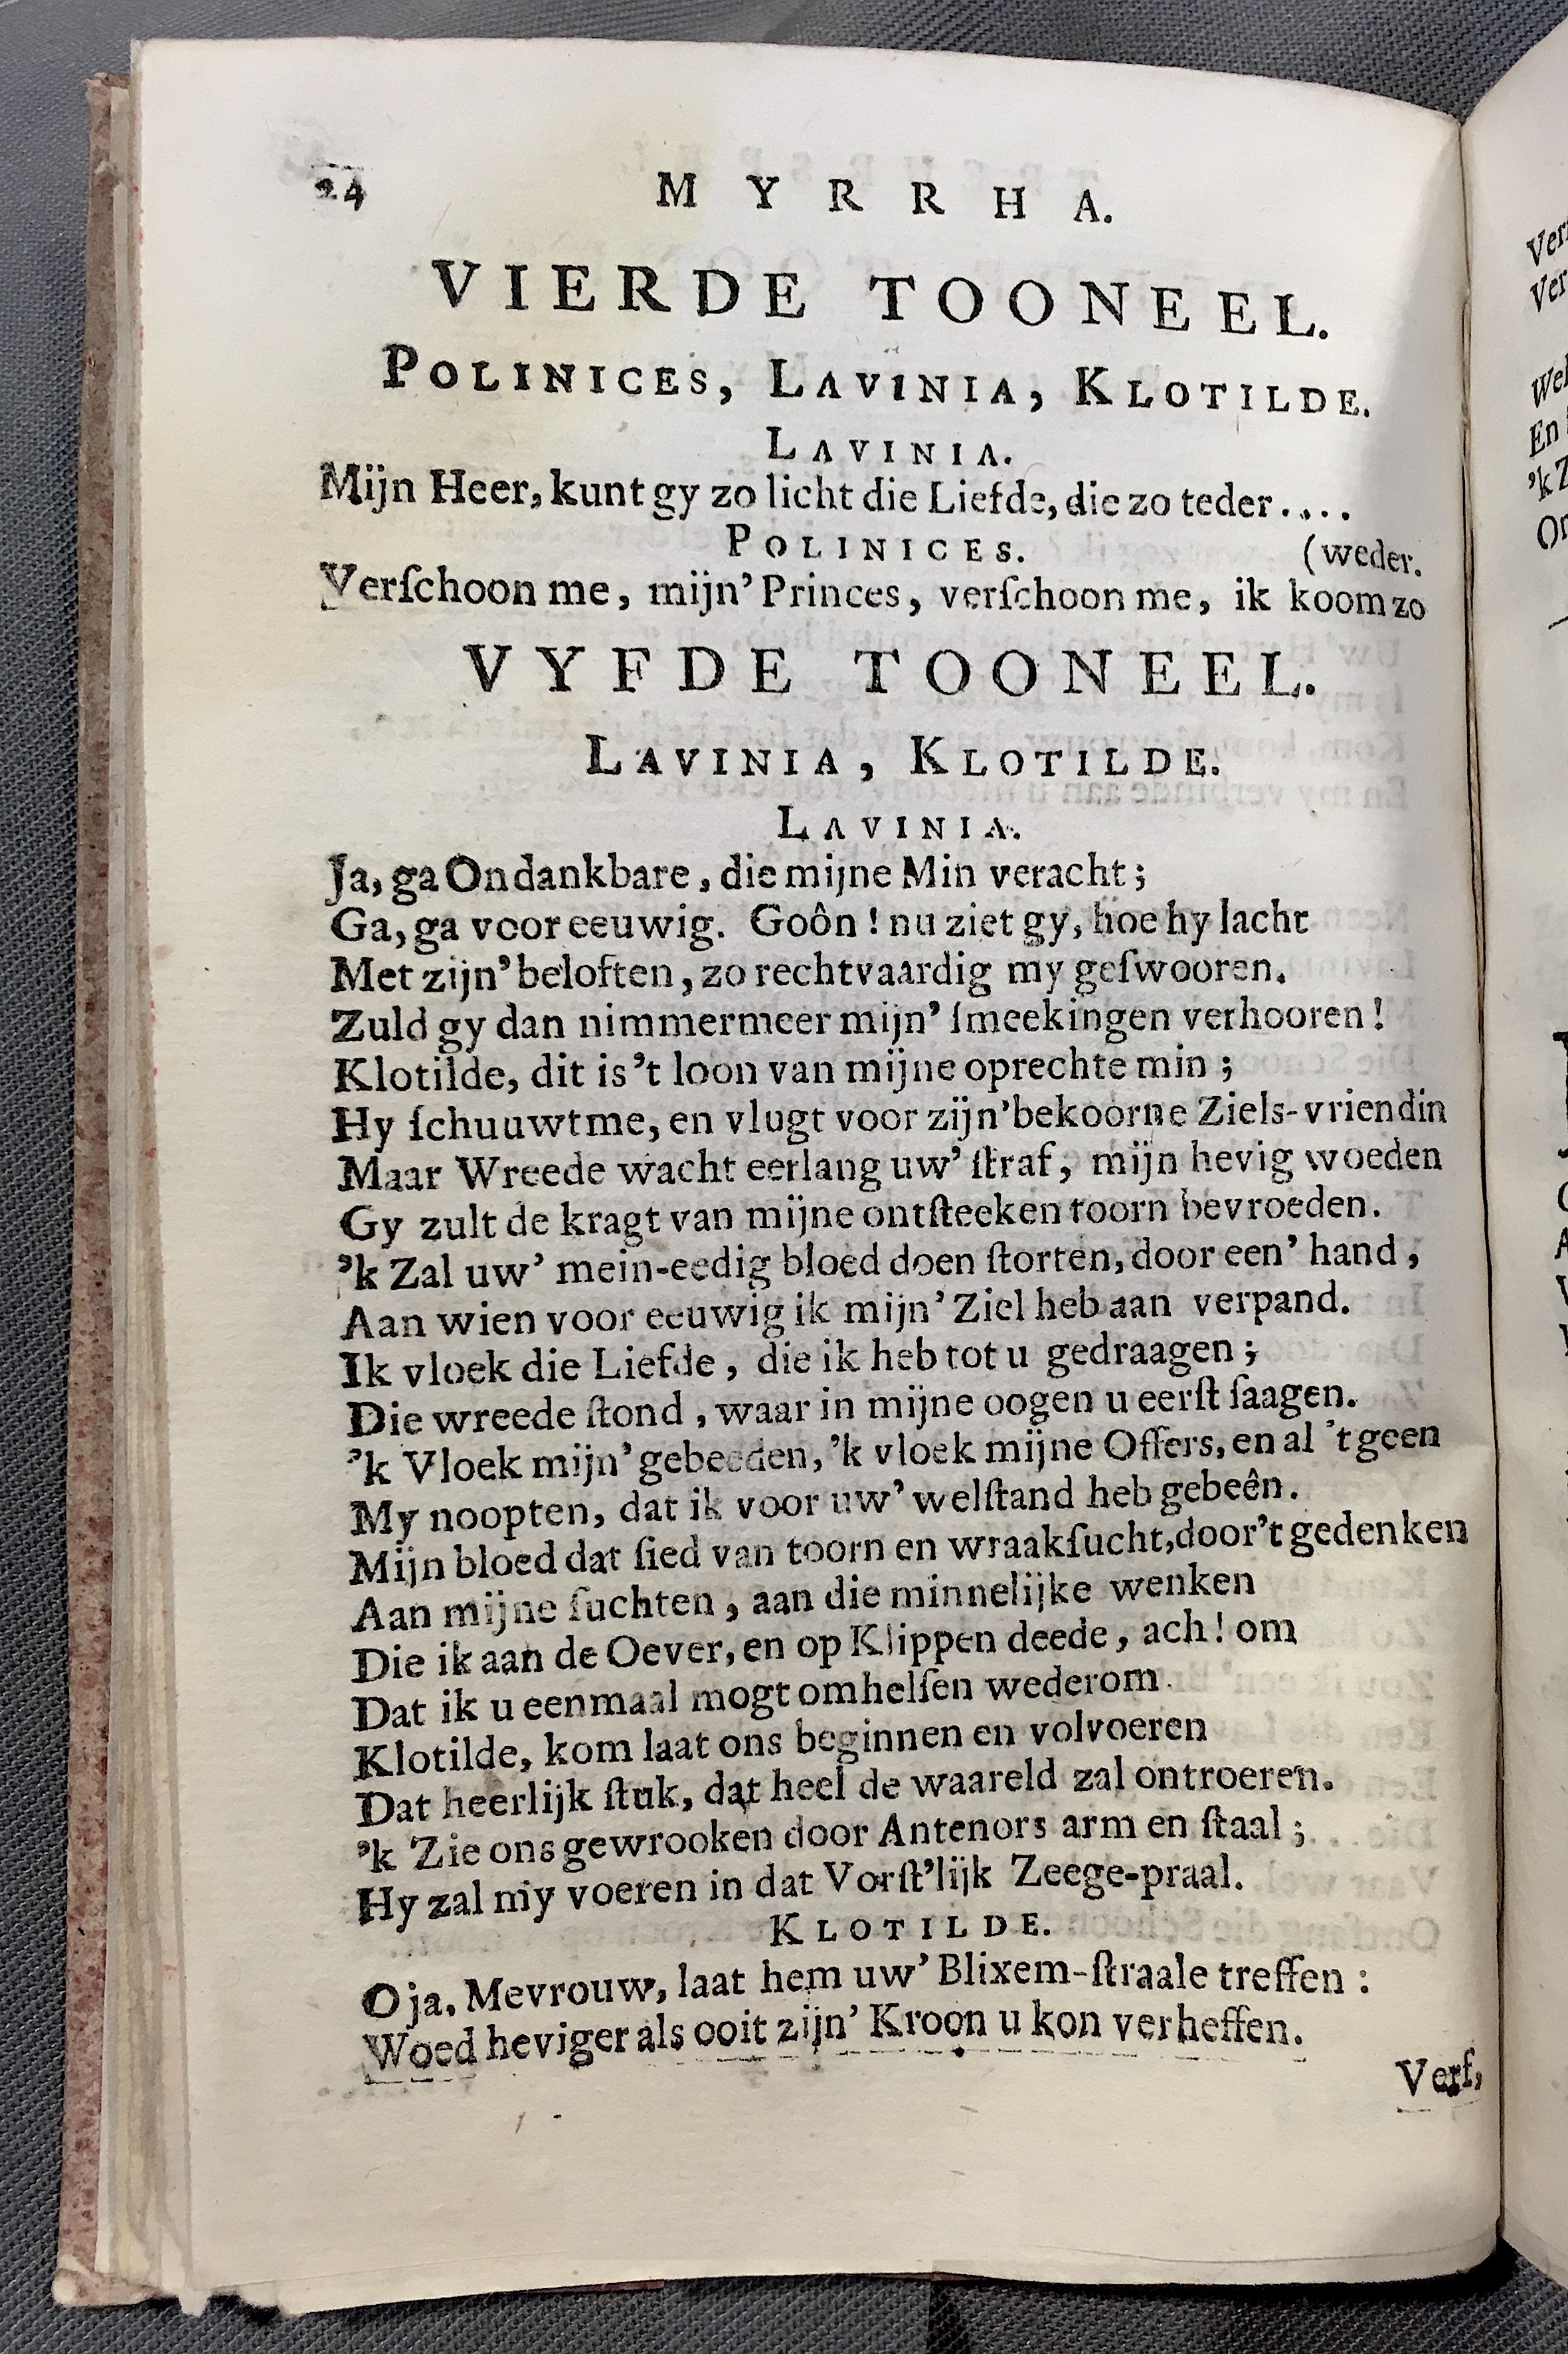 24 MYRRHA.
VIERDE TOONEEL.
POLINICES, LAVINIA, KLOTILDE.
LAVINIA.
Mijn Heer, kunt gy zo licht die Liefde, die zo teder....
POLINICES. (weder.
Verſchoon me, mijn' Princes, verſchoon me, ik koom zo
VYFDE TOONEEL.
LAVINIA, KLOTILDE.
LAVINIA.
Ja, ga Ondankbare, die mijne Min veracht;
Ga, ga voor eeuwig. Goôn! nu ziet gy, hoe hy lacht
Met zijn' beloften, zo rechtvaardig my geſwooren.
Zuld gy dan nimmermeer mijn' ſmeekingen verhooren!
Klotilde, dit is 't loon van mijne oprechte min;
Hy ſchuuwt me, en vlugt voor zijn' bekoorne Ziels-vriendin
Maar Wreede wacht eerlang uw' ſtraf, mijn hevig woeden
Gy zult de kragt van mijne ontſteeken toorn bevroeden.
'k Zal uw' mein-eedig bloed doen ſtorten, door een' hand,
Aan wien voor eeuwig ik mijn' Ziel heb aan verpand.
Ik vloek die Liefde, die ik heb tot u gedraagen;
Die wreede ſtond, waar in mijne oogen u eerſt ſaagen.
'k Vloek mijn' gebeeden, 'k vloek mijne Offers, en al 't geen
My noopten, dat ik voor uw' welſtand heb gebeên.
Mijn bloed dat ſied van toorn en wraakſucht, door 't gedenken
Aan mijne ſuchten, aan die minnelijke wenken
Die ik aan de Oever, en op Klippen deede, ach! om
Dat ik u eenmaal mogt omhelſen wederom.
Klotilde, kom laat ons beginnen en volvoeren
Dat heerlijk ſtuk, dat heel de waareld zal ontroeren.
'k Zie ons gewrooken door Antenors arm en ſtaal;
Hy zal my voeren in dat Vorſt'lijk Zeege-praal.
KLOTILDE.
O ja, Mevrouw, laat hem uw' Blixem-ſtraale treffen:
Woed heviger als ooit zijn' Kroon u kon verheffen.
Verſ,